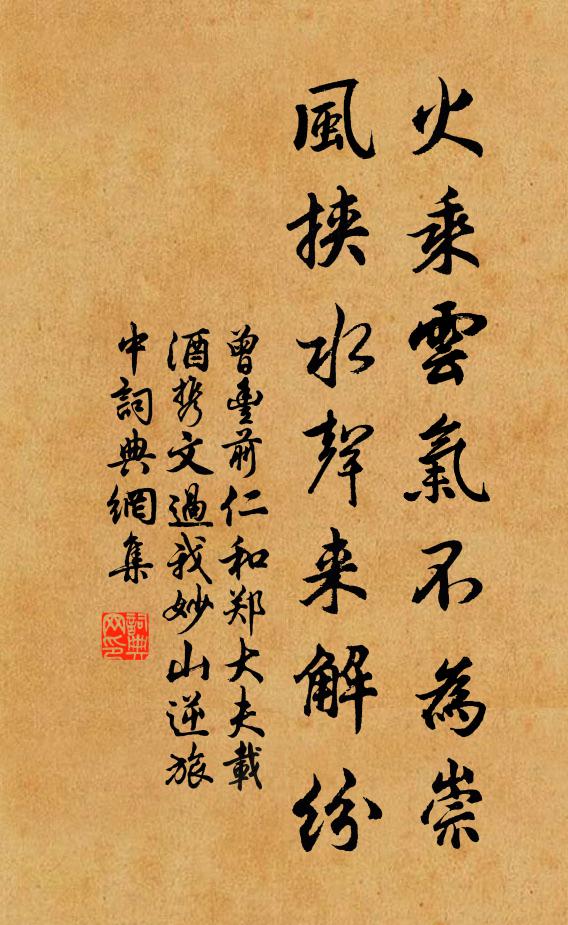 火乘雲氣不為崇
風挾水聲来解紛
曾豐前仁和郑大夫載
酒携文過我妙山逆旅
中詞典網集
詞典
网印